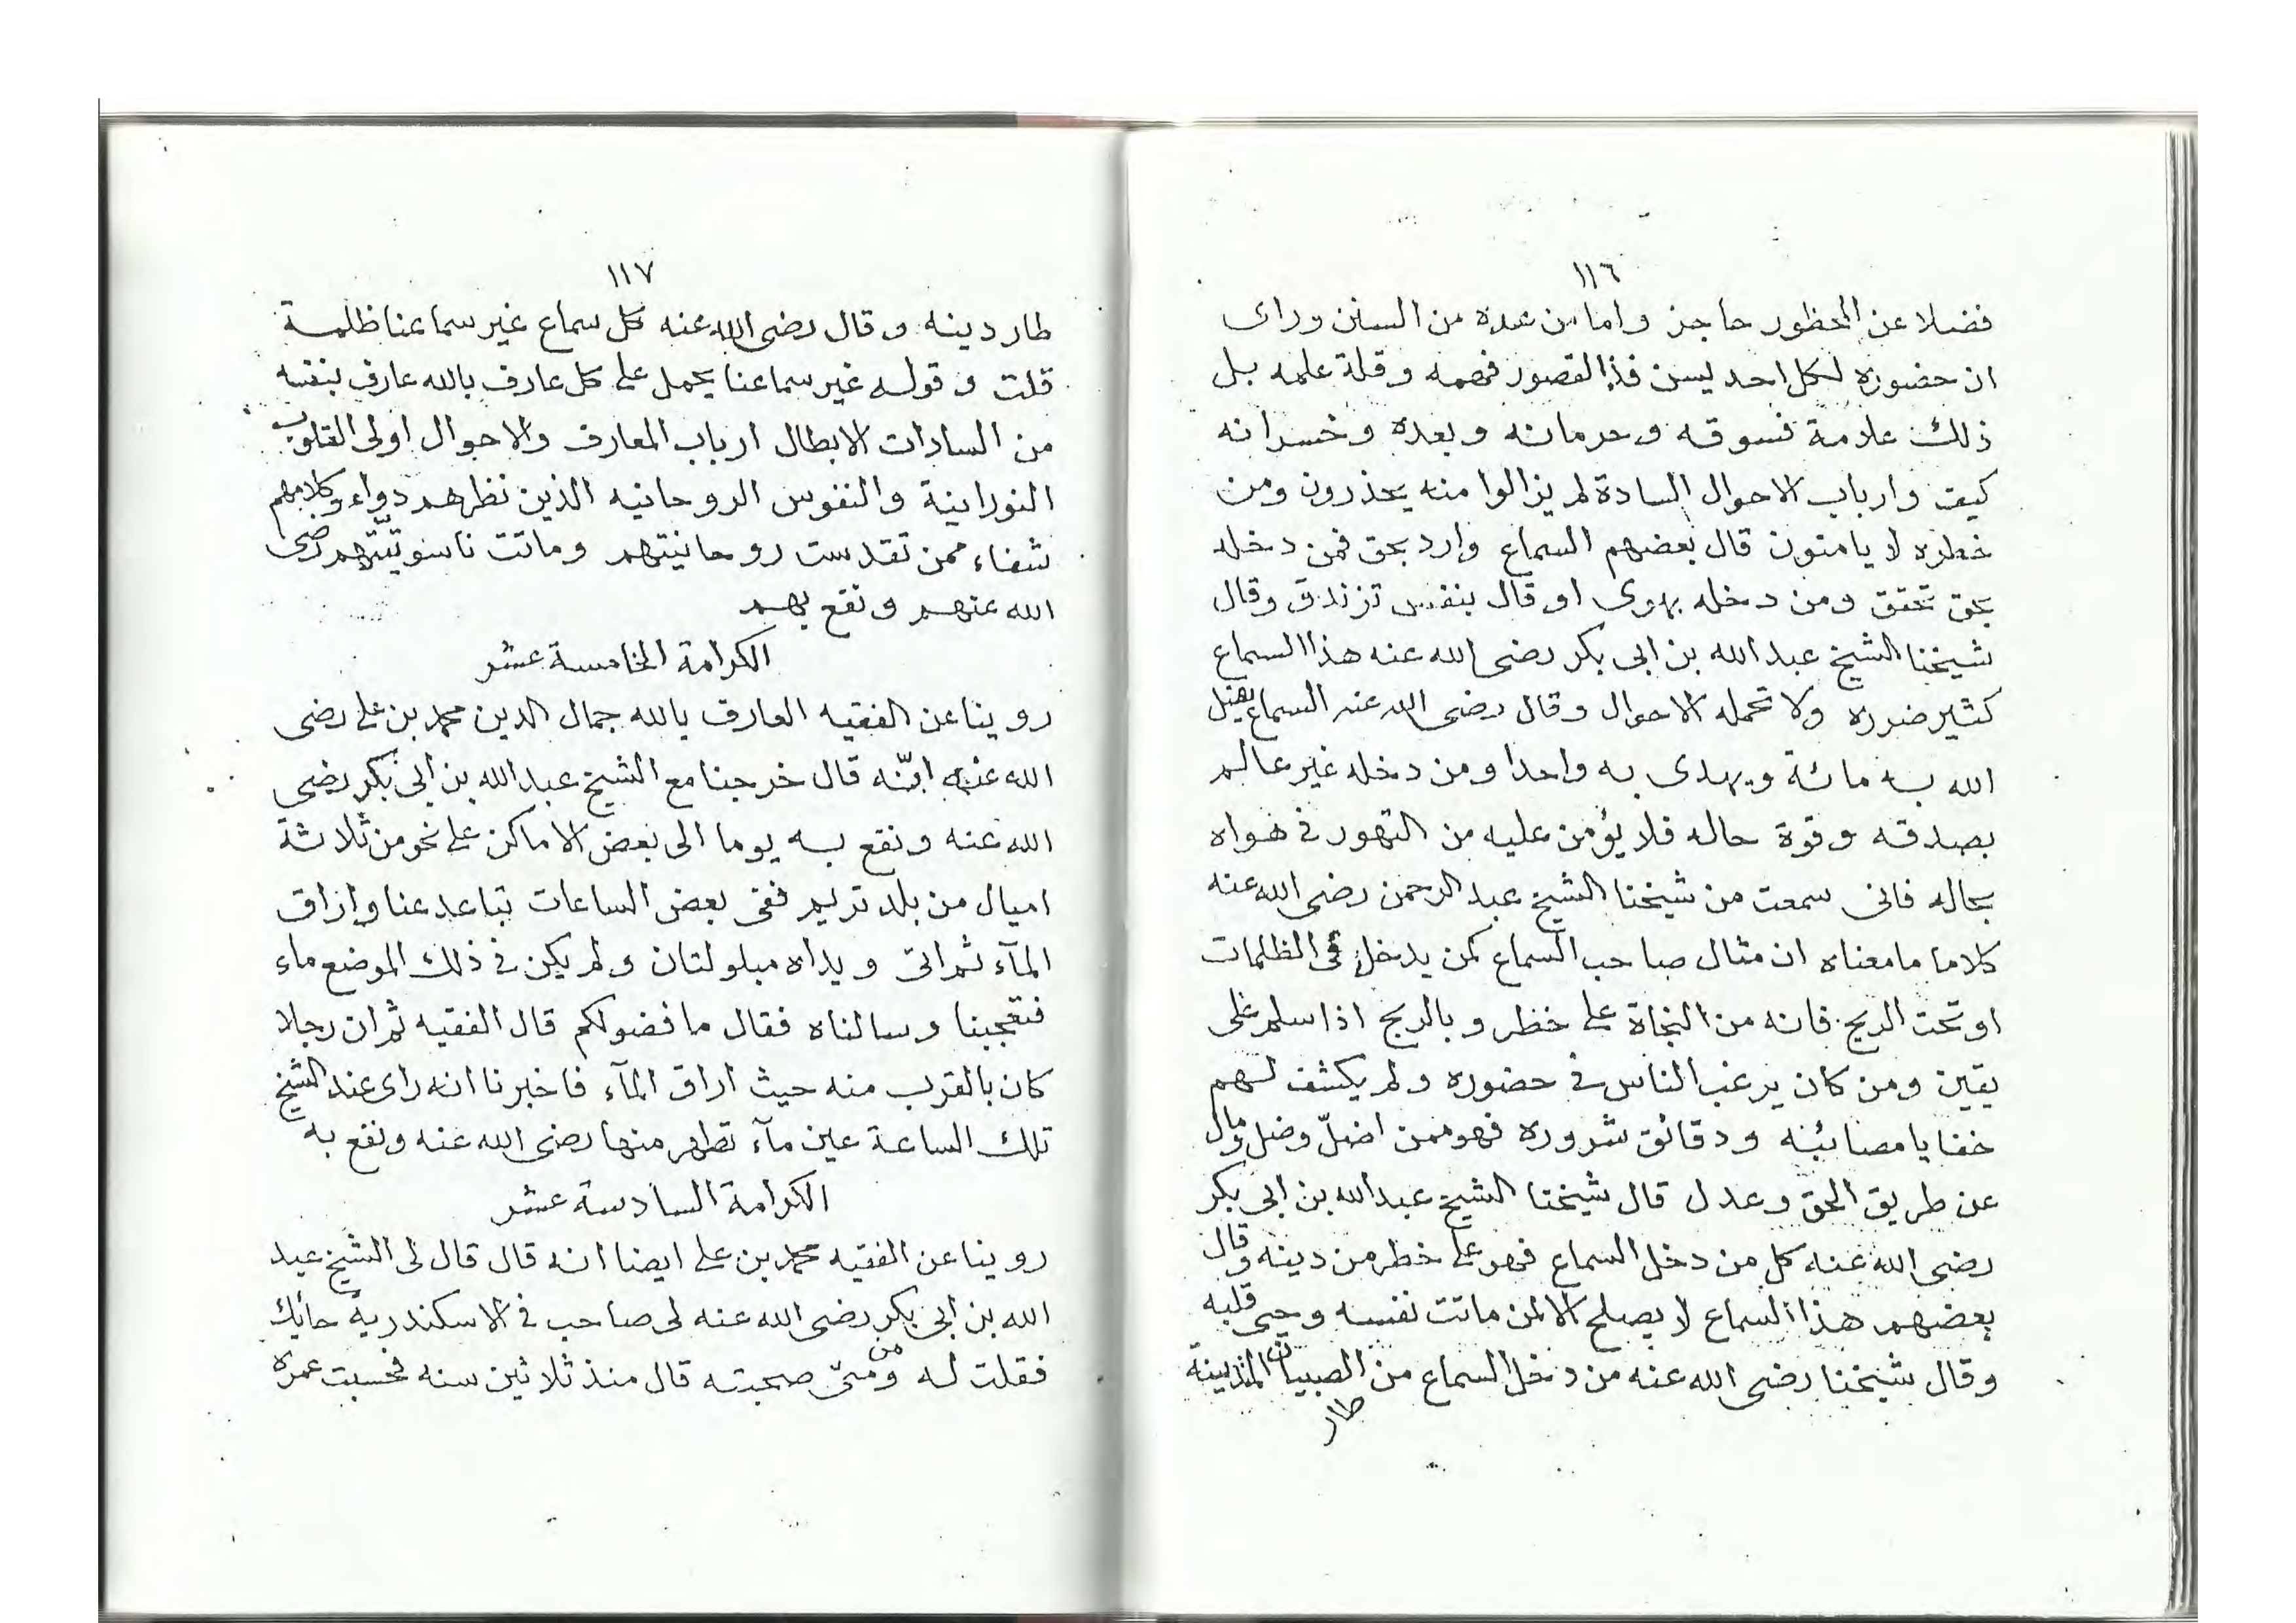 ١١٦
فضلا عن المحظور حاجز واما من عده من السنن وراى
ان حضوره لكل احد ليس فذا لقصور فهمه وقلة علمه بل
ذلك علامة فسوقه وحرمانه وبعده وخسرانه
كيف وارباب الاحوال السادة لم يزالوا منه يحذرون ومن
خطره لا يامنون قال بعضهم السماع وارد بحق فمن دخله
بحق تحقق ومن دخله بهوى او قال بنفس تزندق وقال
شيخنا الشيخ عبد الله بن ابى بكر رضى الله عنه هذا السماع
كثير ضرره ولا تحمله الاحوال وقال رضى الله عنه السماع يضل
الله به مائة ويهدى به واحدا ومن دخله غير عالم
بصدقه وقوة حاله فلا يؤمن عليه من التهور فى هواه
بحاله فانى سمعت من شيخنا الشيخ عبد الرحمن رضى الله عنه
كلاما ما معناه ان مثال صاحب السماع كمن يدخل فى الظلمات
او تحت الريح فانه من النجاة على خطر و بالريح اذا سلم على
يقين ومن كان يرغب الناس فى حضوره ولم يكشف لهم
خفايا مصائبه ودقائق شروره فهو ممن اضلّ وضل ومال
عن طريق الحق وعدل قال شيخنا الشيخ عبد الله بن ابى بكر
رضى الله عنه كل من دخل السماع فهو على خطر من دينه وقال
بعضهم هذا السماع لا يصلح الا لمن ماتت نفسه وحيى قلبه
وقال شيخنا رضى الله عنه من دخل السماع من الصبيان
طار
١١٧
طار دينه وقال رضى الله عنه كل سماع غير سماعنا ظلمة
قلت وقوله غير سماعنا يحمل على كل عارف بالله عارف بنفسه
من السادات الابطال ارباب المعارف والاحوال اولى القلوب
النورانية والنفوس الروحانيه الذين نظرهم دواء وكلامهم
شفاء ممن تقدست روحانيتهم وماتت ناسوتيّتهم رضى
الله عنهم ونفع بهم
الكرامة الخامسة عشر
روينا عن الفقيه العارف بالله جمال الدين محمد بن على رضى
الله عنه انّه قال خرجنا مع الشيخ عبد الله بن ابى بكر رضى
الله عنه ونفع به يوما الى بعض الاماكن على نحو من ثلاثة
اميال من بلد تريم ففى بعض الساعات تباعد عنا واراق
المآء ثم اتى ويداه مبلولتان ولم يكن فى ذلك الموضع ماء
فتعجبنا وسالناه فقال ما فضولكم قال الفقيه ثم ان رجلا
كان بالقرب منه حيث اراق المآء فاخبرنا انه راى عند الشيخ
تلك الساعة عين مآء تطهر منها رضى الله عنه ونفع به
الكرامة السادسة عشر
روينا عن الفقيه محمد بن على ايضا انه قال قال لى الشيخ عبد
الله بن ابى بكر رضى الله عنه لى صاحب فى الاسكندرية حائك
فقلت له ومن متىّ صحبته قال منذ ثلاثين سنه فحسبت عمره